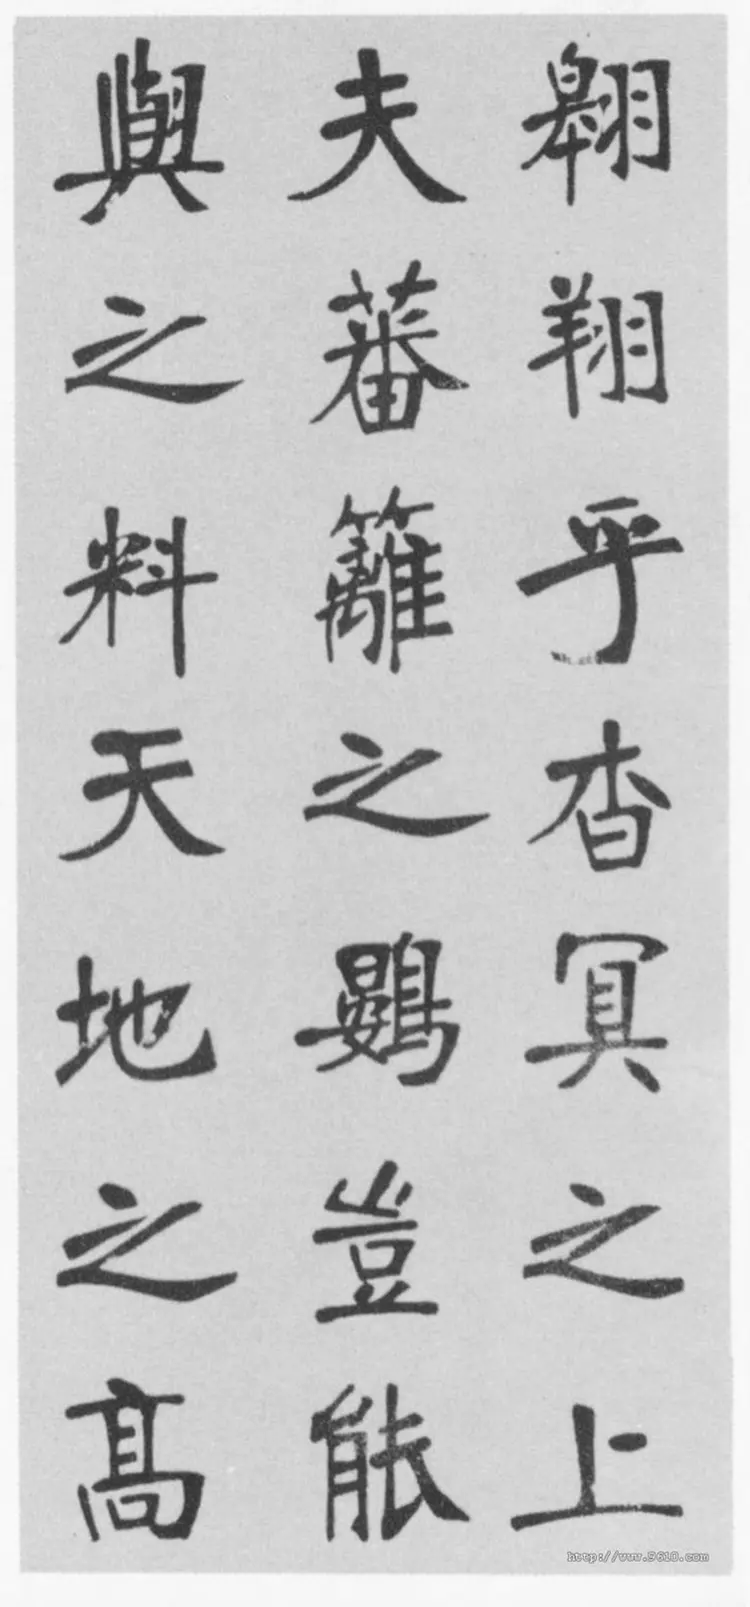 翱翔乎杳冥之上
夫蕃籬之鷃豈能
與之料天地之髙
http://www.9610.com